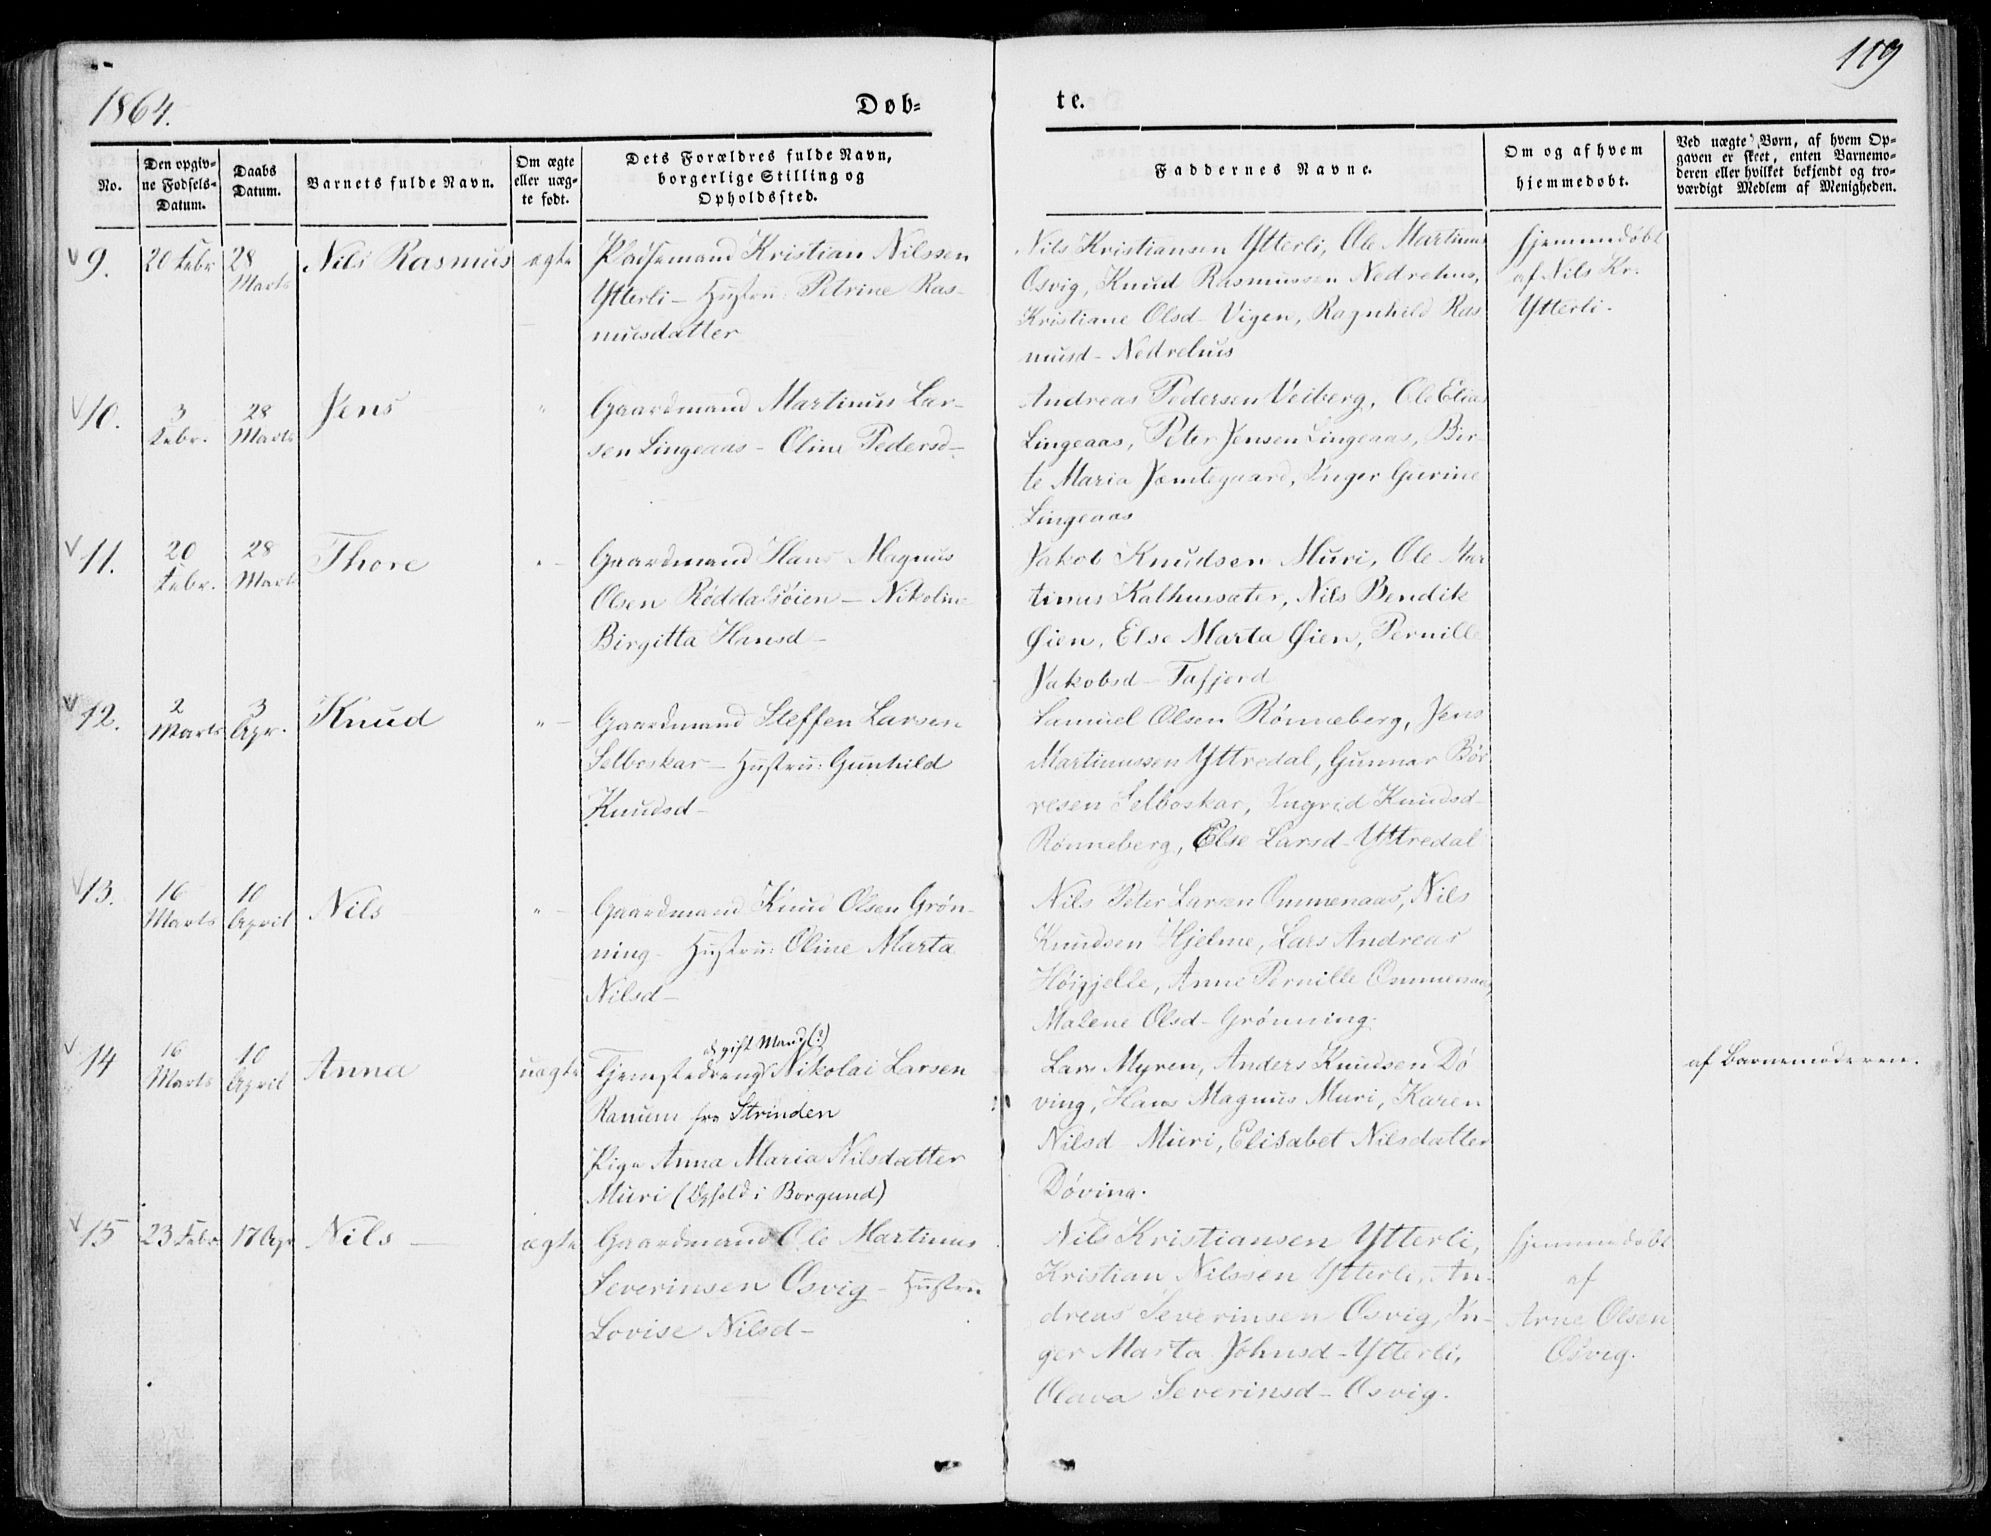 119
1864.
Døb-
te.
No.
Den opgiv-
ne Fødsels-
Datum.
Daabs
Datum.
Barnets fulde Navn.
Om ægte
eller uæg-
te født.
Dets Forældres fulde Navn,
borgerlige Stilling og
Opholdssted.
Faddernes Navne.
Om og af hvem
hjemmedøbt.
Ved uægte Børn, af hvem Op-
gaven er skeet, enten Barnemo-
deren eller hvilket bekjendt og tro-
værdigt Medlem af Menigheden.
9.
20 Febr
28
Marts
Nils Rasmus
ægte
Pladsemand Kristian Nilssen
Ytterli - Hustru: Petrine Ras-
musdatter
Nils Kristiansen Ytterli, Ole Martinus
Osvig, Knud Rasmussen Nedrehus,
Kristiane Olsd- Vigen, Ragnhild Ras
musd- Nedrehus
hjemmedøbt
af Nils Kr.
Ytterli.
10.
3
Febr.
28
Marts
Jens
"
Gaardmand Martinus Lar-
sen Lingeaas - Oline Pedersd-
Andreas Pedersen Veiberg, Ole Elias
Lingeaas, Peter Jensen Lingeaas, Bir-
te Maria Jemtegaard, Inger Gurine
Lingeaas
11.
20
Febr.
28
Marts
Thore
"
Gaardmand Hans Magnus
Olsen Røddalsøien - Nikoline
Birgitta Hansd-
Jakob Knudsen Muri, Ole Mar
tinus Kalhussæter, Nils Bendik
Øien, Else Marta Øien, Pernille
Jakobsd- Tafjord
12.
2
Marts
3
Apr.
Knud
"
Gaardmand Steffen Larsen
Selboskar - Hustru: Gunhild
Knudsd-
Samuel Olsen Rønneberg, Jens
Martinussen Yttredal, Gunnar Bør
resen Selboskar, Ingrid Knudsd-
Rønneberg, Else Larsd- Yttredal
13.
16
Marts
10
April
Nils
"
Gaardmand Knud Olsen Grøn-
ning - Hustru: Oline Marta
Nilsd-
Nils Peter Larsen Ommenaas, Nils
Knudsen Hjelme, Lars Andreas
Høigjelle, Anne Pernille Ommenaas,
Malene Olsd- Grønning.
14
16
Marts
10
April
Anna
uægte
gift Mand(?)
Tjenestedreng Nikolai Larsen
Ranum fra Strinden
Pige Anna Maria Nilsdatter
Muri (Ophold i Borgund)
Lars Myren, Anders Knudsen Dø
ving, Hans Magnus Muri, Karen
Nilsd- Muri, Elisabet Nilsdatter
Døving.
af Barnemoderen.
15
23 Febr
17 Apr
Nils
ægte
Gaardmand Ole Martinus
Severinsen Osvig - Hustru
Lovise Nilsd-
Nils Kristiansen Ytterli,
Kristian Nilssen Ytterli, An-
dreas Severinsen Osvig, In-
ger Marta Johnsd- Ytterli,
Olava Severinsd- Osvig.
hjemmedøbt
af
Arne Olsen
Osvig.